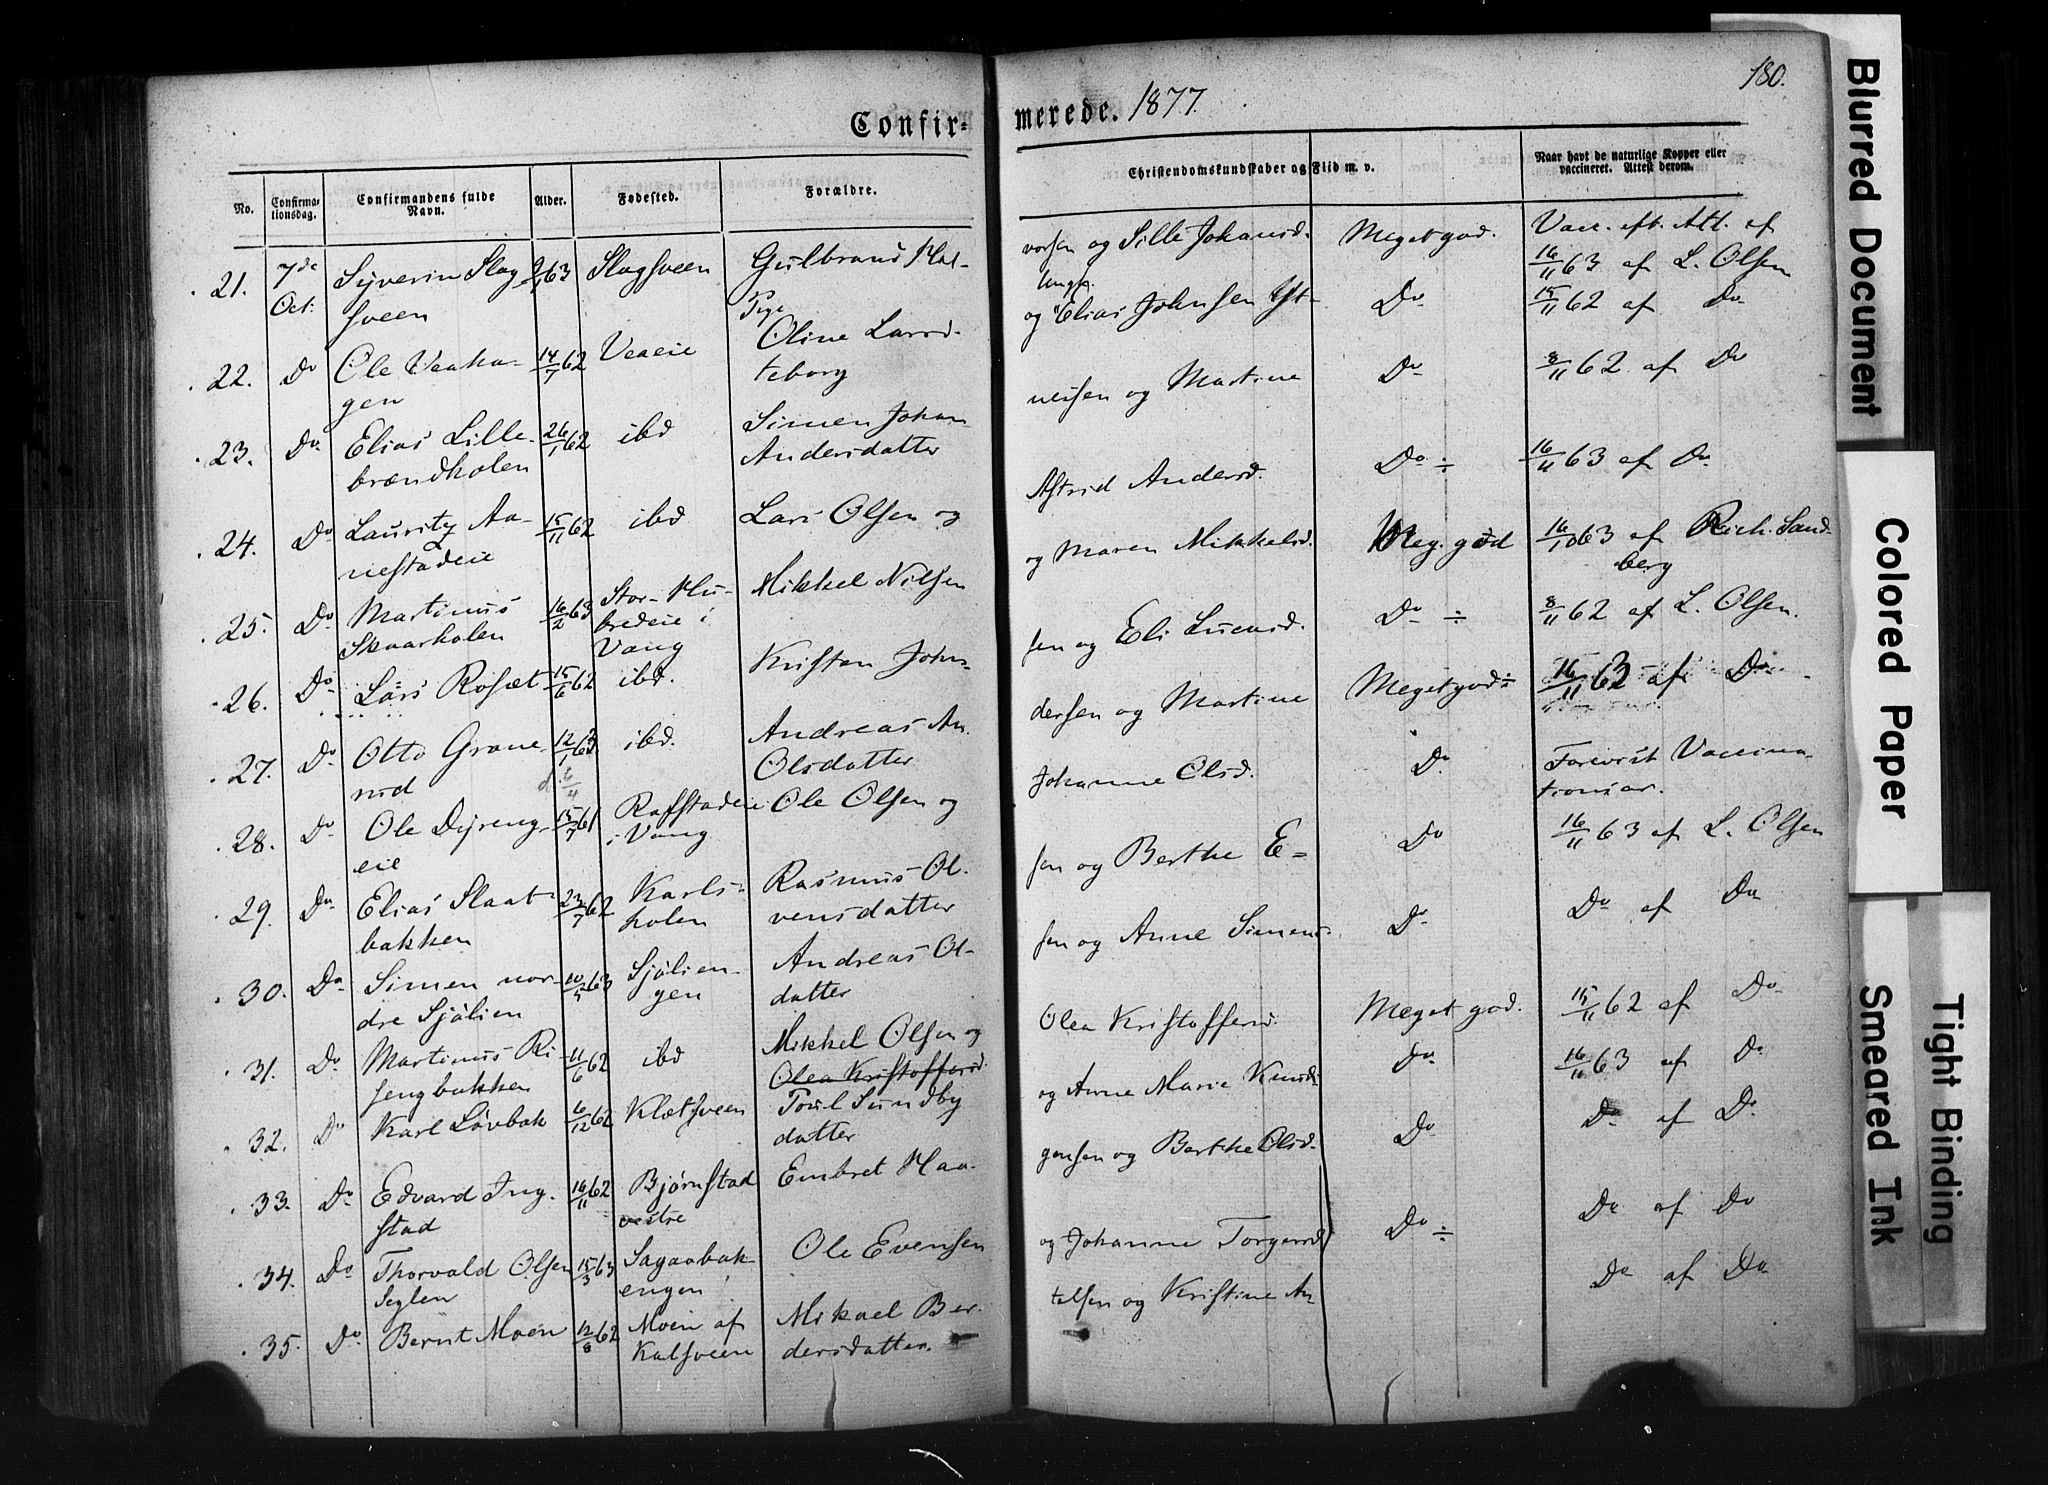 180.
Confir-
merede. 1877.
No.
Confirma-
tionsdag.
Confirmandens fulde
Navn.
Alder.
Fødested.
Forældre.
Christendomskundskaber og Flid m. v.
Naar havt de naturlige Kopper eller
vaccineret. Attest derom.
21. 7de Syverin Slag- 63 Slagsveen Gulbrand Hal- vorsen og Sille Johansd. Meget god. Vacc. eft. Att. af
Oct. sveen 16/11 63 af L. Olsen
22. Do Ole Vaaha- 14/7 62 Veaeie Pige Oline Larsd. og Ungk. Elias Johnsen Yt- Do 15/11 62 af Do
gen teborg
23. Do Elias Lille- 26/1 62 ibd Simen Johan- nesen og Martine Do 8/11 62 af Do
brændholen Andersdatter
24. Do Lauritz Aa- 15/11 62 ibd Lars Olsen og Astrid Andersd. Do ÷ 16/11 63 af Do
nestadeie
25. Do Martinus 16/2 63 Stor-Hu- Mikkel Nilsen og Maren Mikkelsd. Meg. god 16/10 63 af Rich. Sand-
Skaarholen bredeie i berg
Vang
26. Do Lars Rosæt 15/6 62 ibd. Kristen John- sen og Eli Lucasd. Do ÷ 8/11 62 af L. Olsen.
27. Do Otto Grane- 12/1 63 ibd. Andreas An- dersen og Martine Meget god ÷ 16/11 63 af Do
rud Olsdatter
28. Do Ole Dyreng- 15/7 61 Rafstadeie Ole Olsen og Johanne Olsd. Do Forevist Vaccina-
eie i Vang tionsat.
29. Do Elias Slaat- 23/7 62 Karls- Rasmus Ol- sen og Berthe E- Do 16/11 63 af L. Olsen
bakken holen vensdatter
30. Do Simen nor- 10/5 63 Sjølien- Andreas Ol- sen og Anne Simens- Do Do af Do
dre Sjølien gen datter
31. Do Martinus Ri- 11/6 62 ibd Mikkel Olsen og Olea Kristoffersd. Meget god. 15/11 62 af Do
sengbakken Olea Kristoffersd.
32. Do Karl Løvbak 6/12 62 Klætsveen Poul Sundby og Anne Marie Knuds- Do 16/11 63 af Do
datter
33. Do Edvard Ing- 16/11 62 Bjørnstad Embret Haa- gensen og Berthe Olsd. Do Do af Do
stad vestre
34. Do Thorvald Olsen 15/3 63 Sagaabak- Ole Evensen og Johanne Torgersd. Do ÷ Do af Do
Seglen engen
35. Do Bernt Moen 12/8 62 Moen af Mikael Ber- telsen og Kristine An- Do af Do
Kalsveen dersdatter.
Blurred Document
Colored Paper
Tight Binding
Smeared Ink